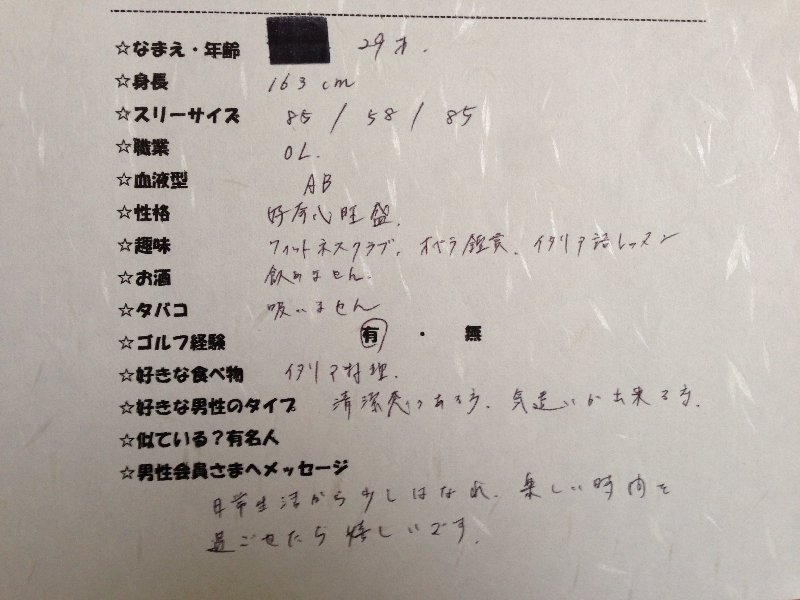 ☆なまえ・年齢 29才.
☆身長 163cm
☆スリーサイズ 85 / 58 / 85
☆職業 OL.
☆血液型 AB
☆性格 好奇心旺盛.
☆趣味 フィットネスクラブ、オペラ鑑賞、イタリア語レッスン
☆お酒 飲めません.
☆タバコ 吸いません
☆ゴルフ経験 有 ・ 無
☆好きな食べ物 イタリア料理.
☆好きな男性のタイプ 清潔感のある方、気遣いが出来る方.
☆似ている?有名人
☆男性会員さまへメッセージ
日常生活から少しはなれ、楽しい時間を
過ごせたら嬉しいです.